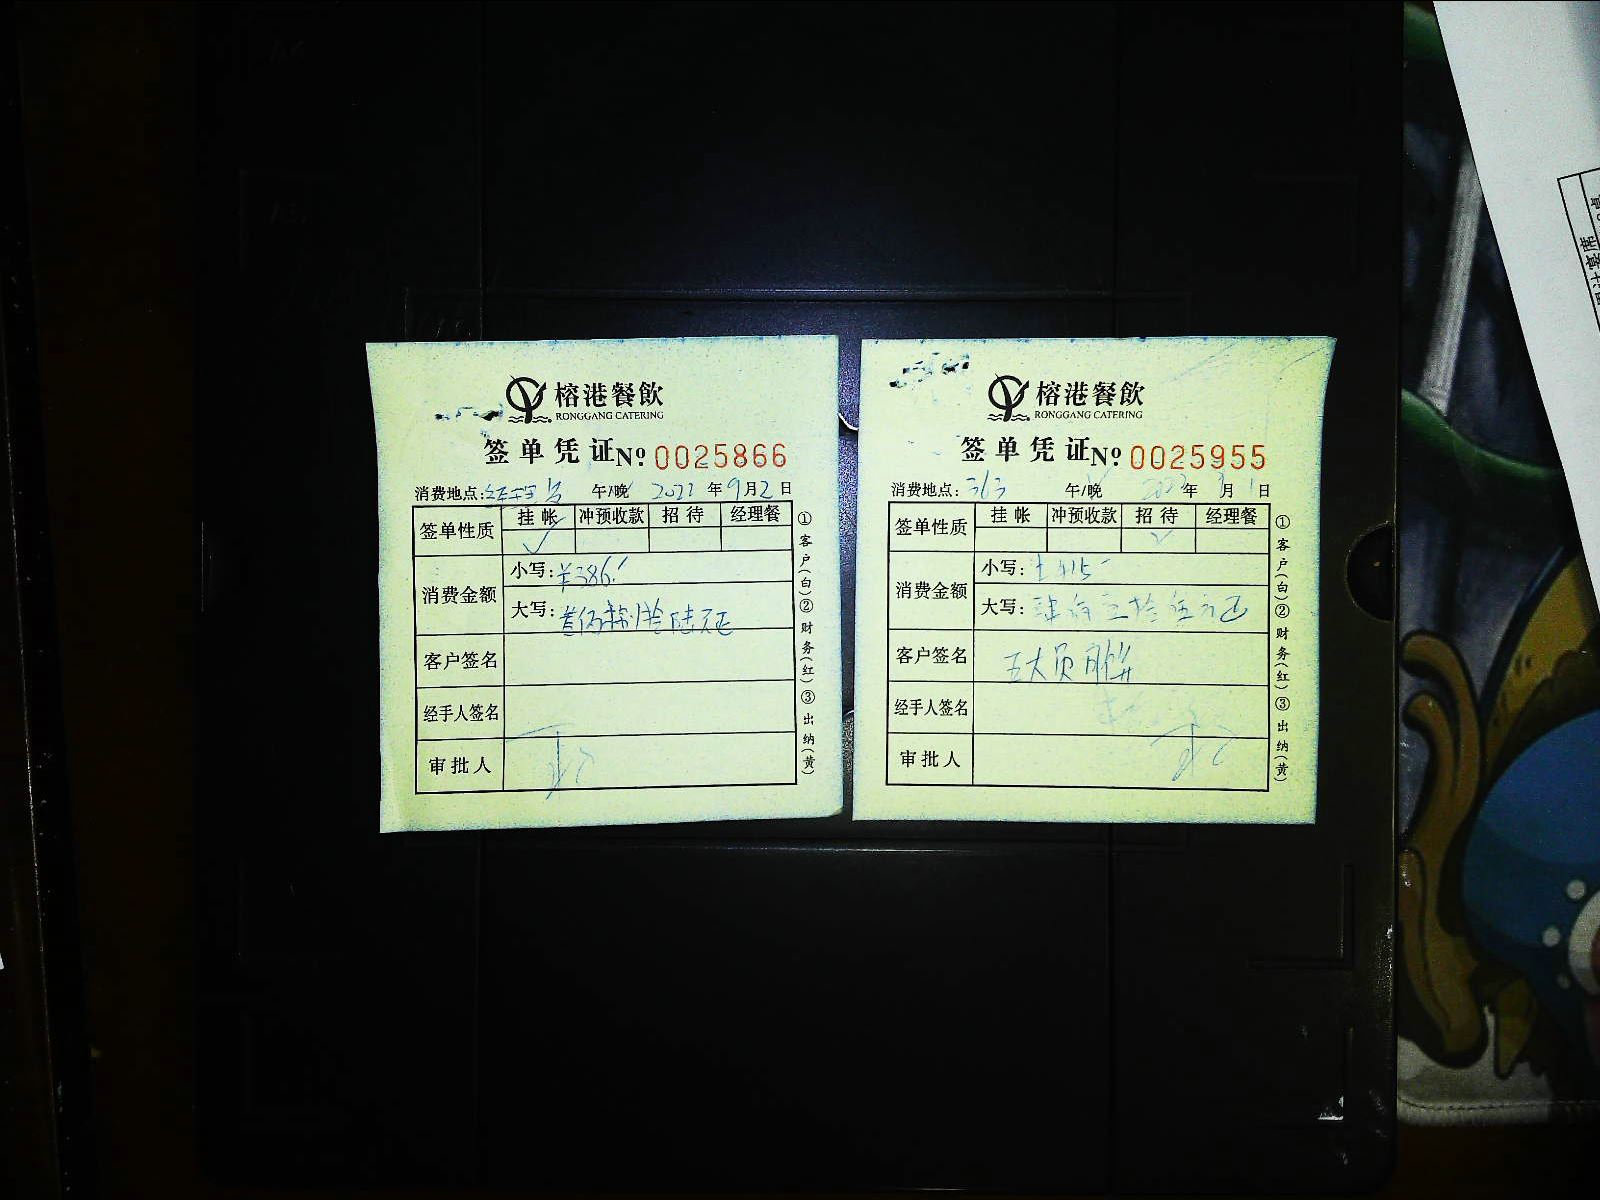 榕港餐飲
RONGGANG CATERING
签单凭证 Nº 0025866
消费地点: 午/晚 2022年9月2日
签单性质 挂帐 冲预收款 招待 经理餐
✓
消费金额 小写:¥386
大写: 陆元正
客户签名
经手人签名
审批人
①客户(白)②财务(红)③出纳(黄)
榕港餐飲
RONGGANG CATERING
签单凭证 Nº 0025955
消费地点:363 午/晚 年 月1日
签单性质 挂帐 冲预收款 招待 经理餐
✓
消费金额 小写: 415
大写:肆佰 拾伍元正
客户签名 五大员月饼
经手人签名
审批人
①客户(白)②财务(红)③出纳(黄)